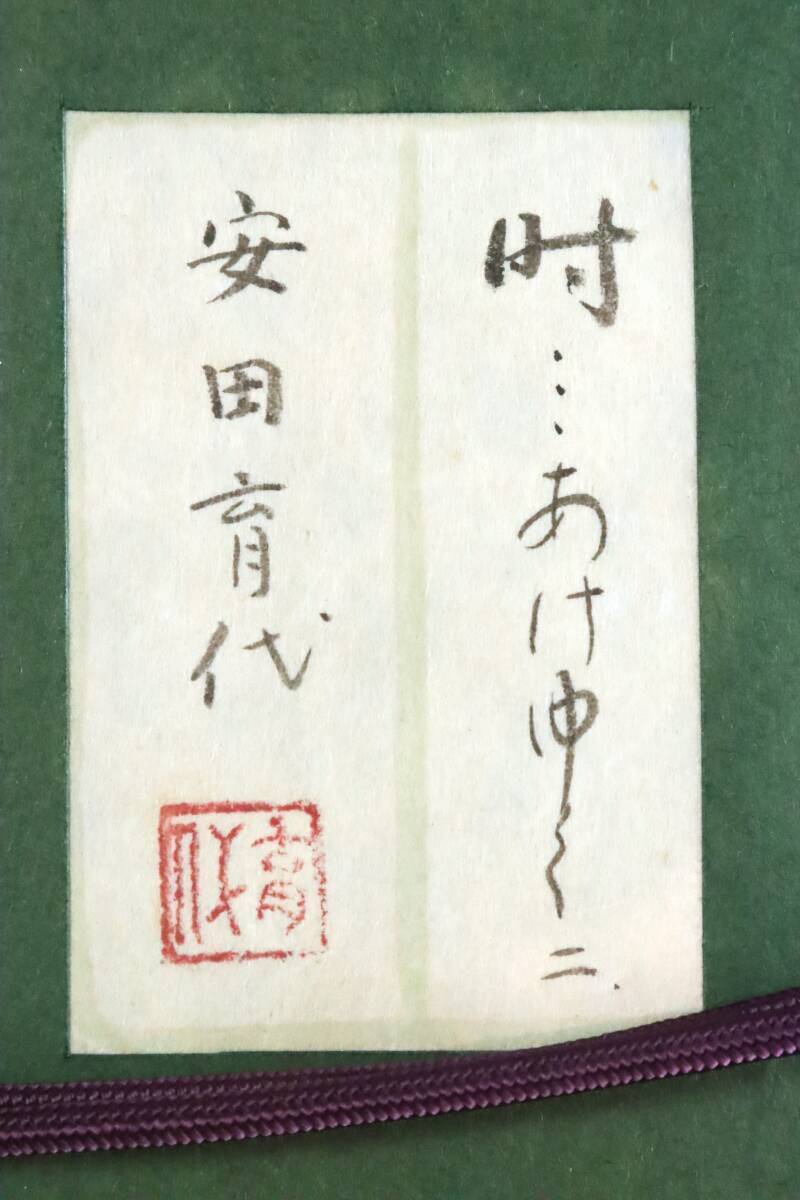 时…あけゆく二.
安田育代
育代